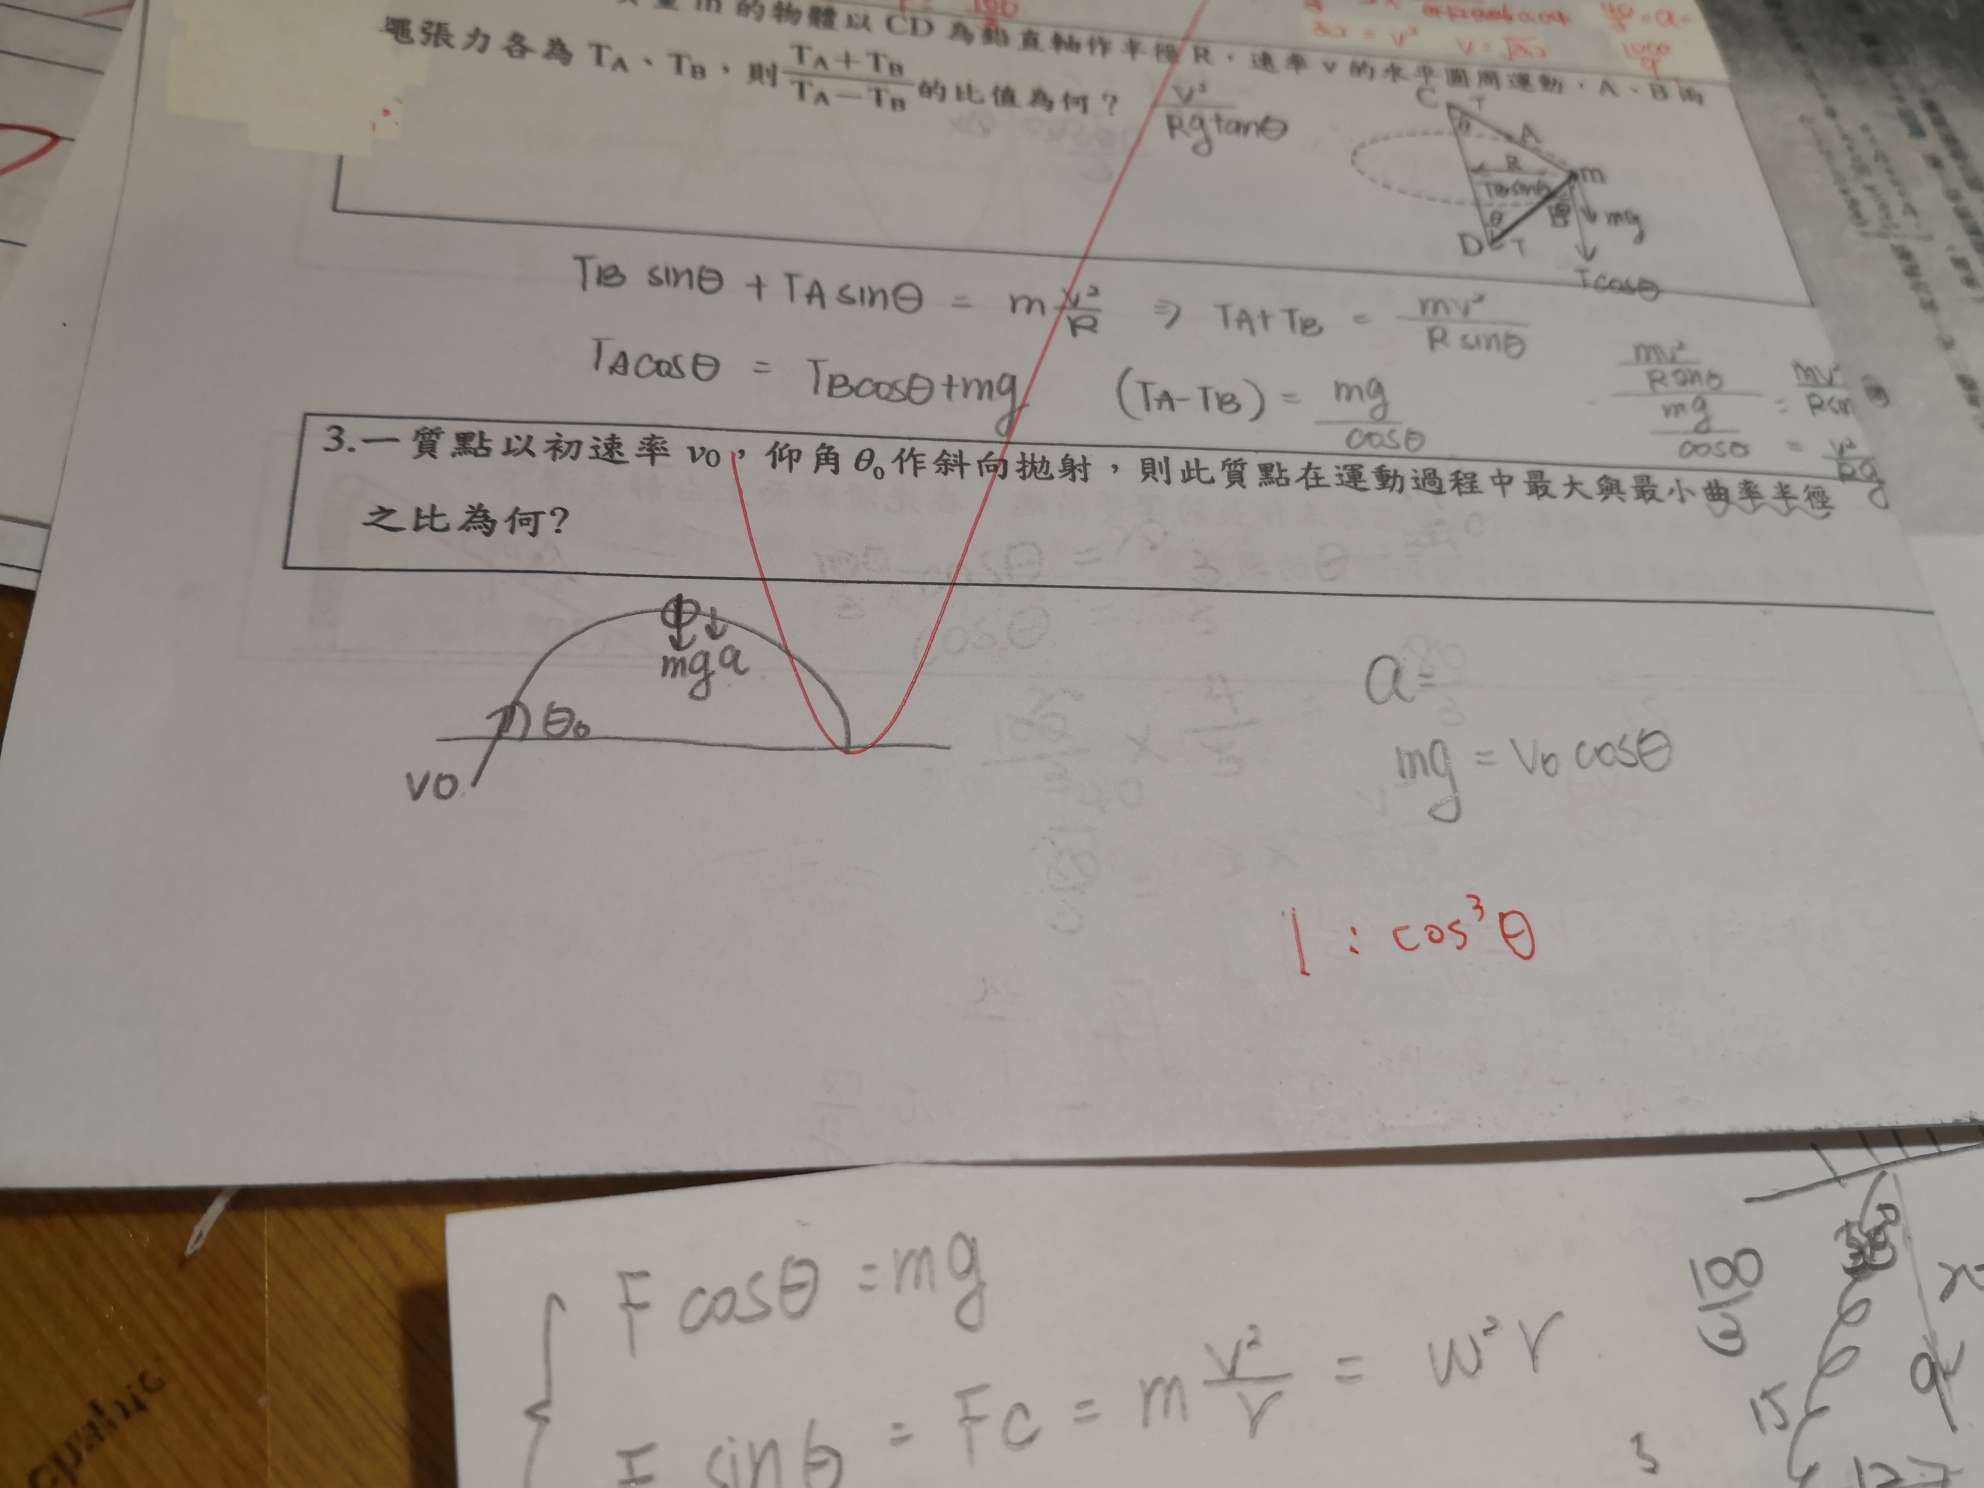 m 的物體以 CD 為鉛直軸作半徑 R,速率 v 的水平圓周運動,A、B 兩
繩張力各為 TA、TB,則 (TA+TB)/(TA−TB) 的比值為何? v²/(Rg tanθ)
C T
θ A
R m
TBsinθ
θ B mg
D T
Tcosθ
TB sinθ + TA sinθ = m v²/R ⇒ TA+TB = mv²/(R sinθ)
TA cosθ = TB cosθ + mg (TA-TB) = mg/cosθ
3.一質點以初速率 v0,仰角 θ₀ 作斜向拋射,則此質點在運動過程中最大與最小曲率半徑
之比為何?
mg a
θ₀
v0
a =
mg = v0 cosθ
1 : cos³θ
F cosθ = mg
F sinθ = Fc = m v²/r = w²r
100/3
15
3